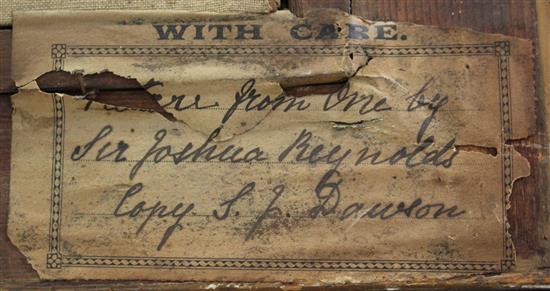 WITH CARE.
from One by
Sir Joshua Reynolds
Copy S. J. Dawson